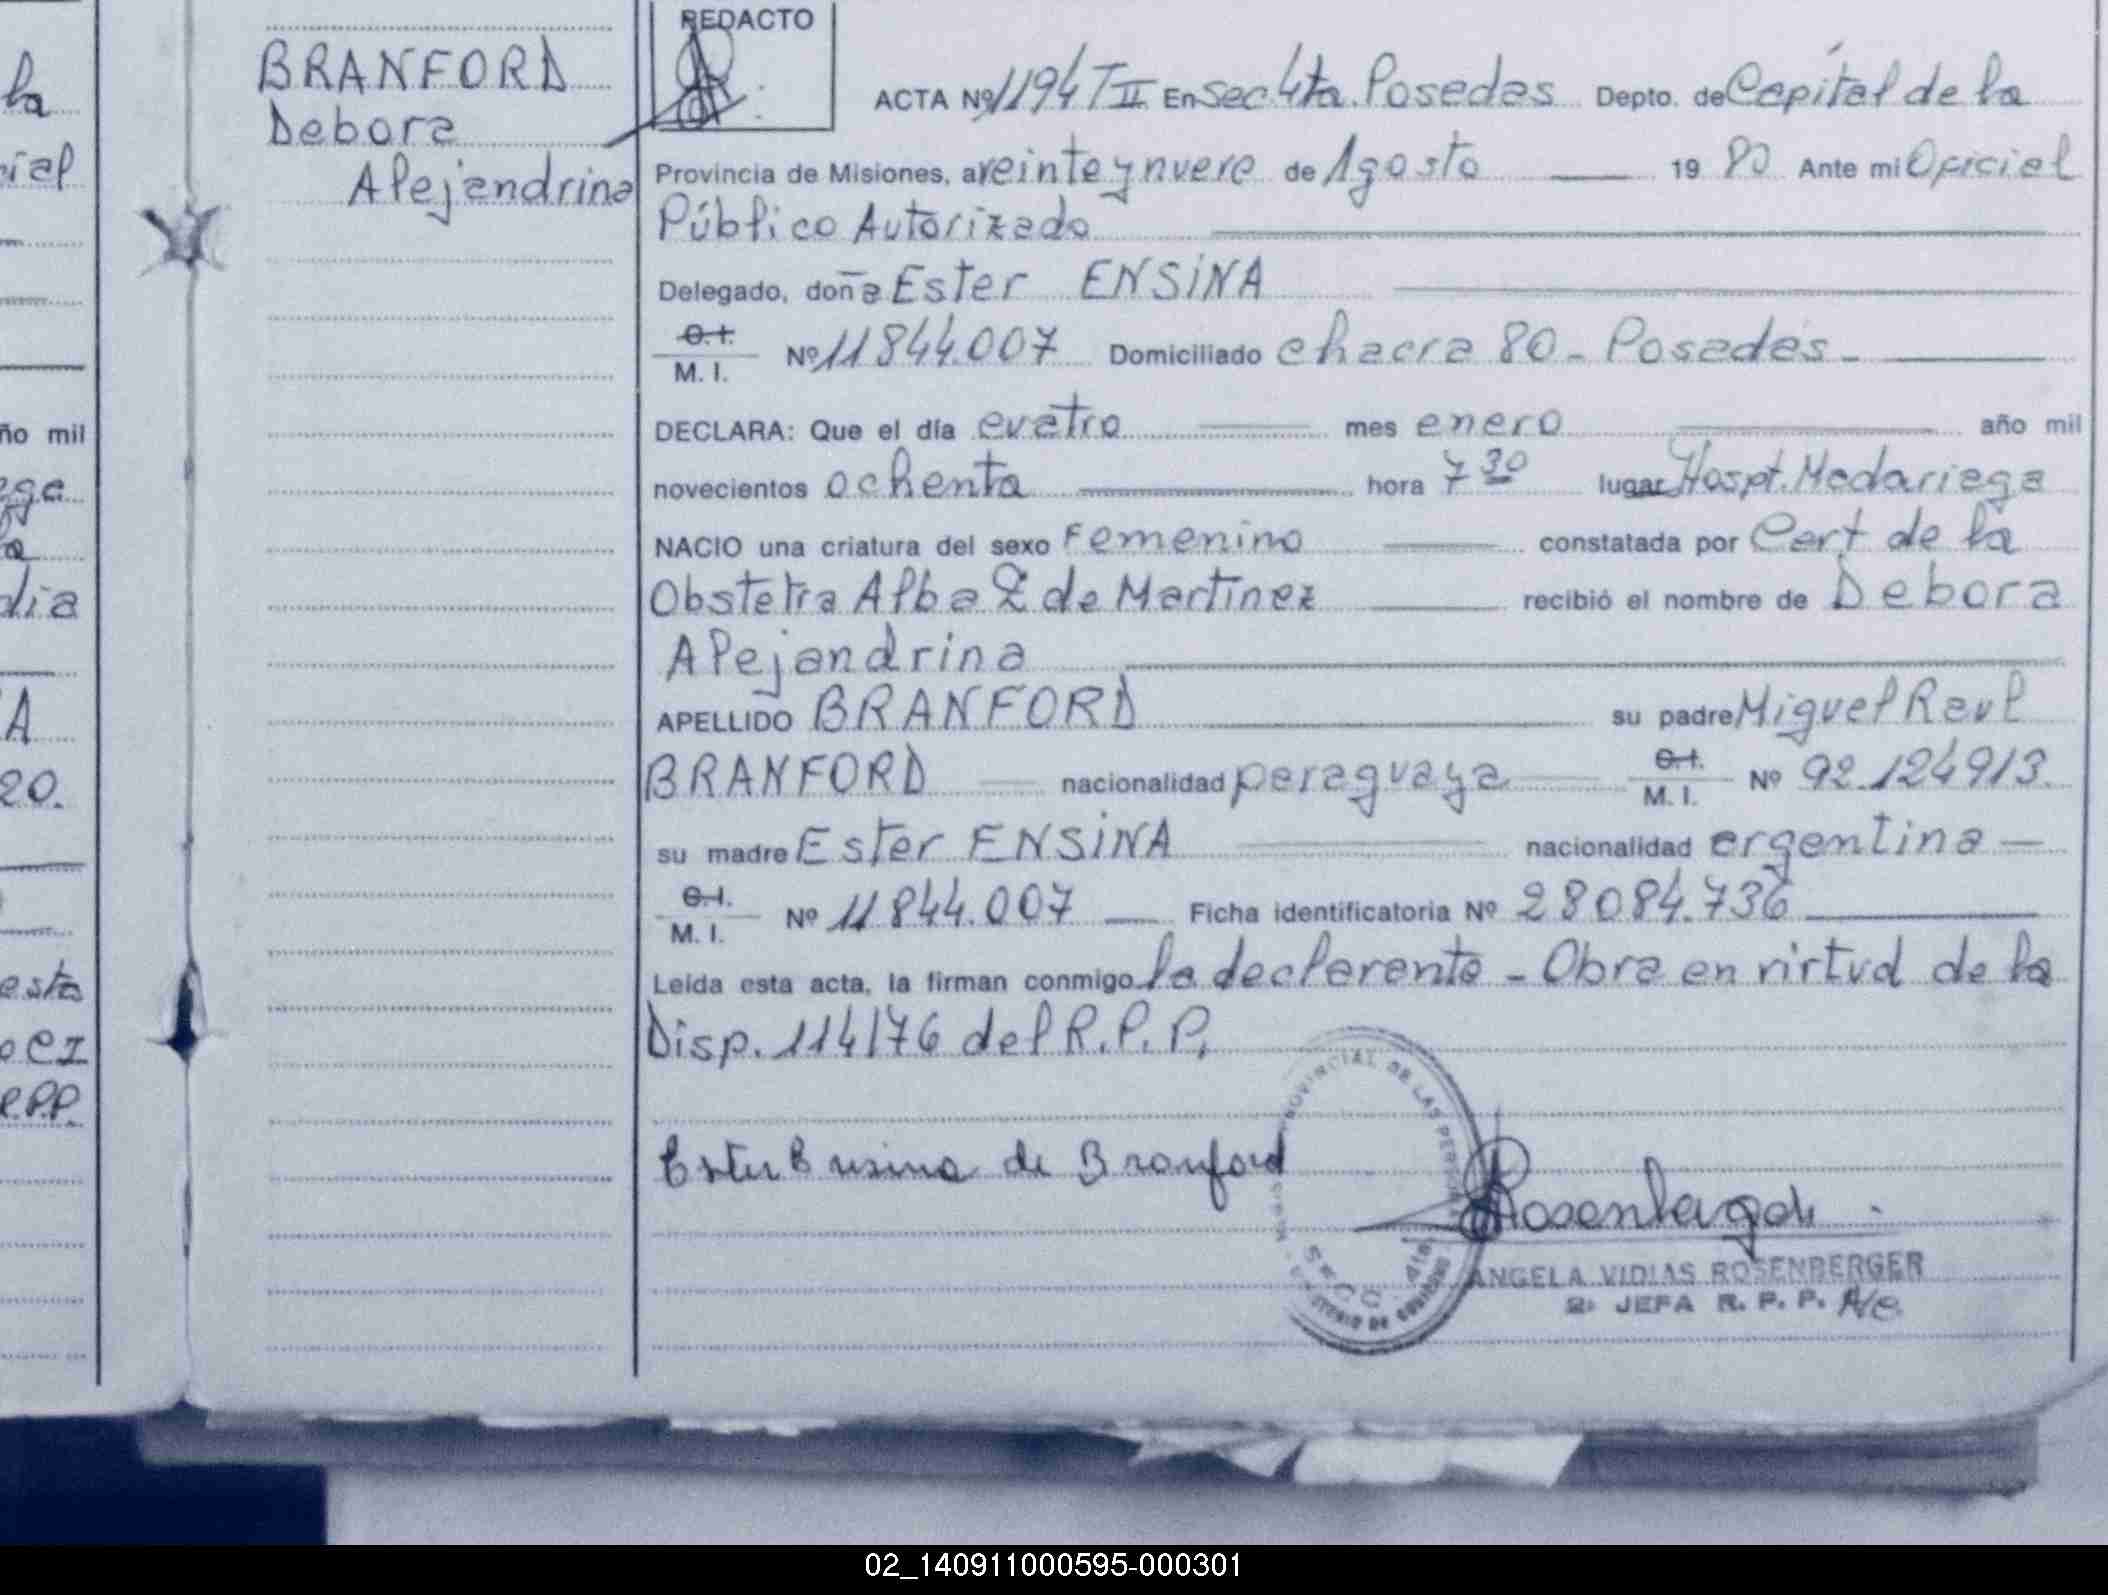 la
cial
ño mil
dia
A
20.
esta
o CI
R.P.P.
BRANFORD
Debora
Alejandrina
REDACTO
ACTA Nº 1194 T II En Sec 4ta. Posadas Depto. de Capítal de la
Provincia de Misiones, a veinte y nueve de Agosto 19 80 Ante mi Oficial
Público Autorizado
Delegado, doña Ester ENSINA
C.I.
M. I. Nº 11844.007 Domiciliado chacra 80 - Posadas -
DECLARA: Que el día cuatro mes enero año mil
novecientos ochenta hora 7 30 lugar Hospt. Madariaga
NACIO una criatura del sexo Femenino constatada por Cert de la
Obstetra Alba Z de Martinez recibió el nombre de Debora
Alejandrina
APELLIDO BRANFORD su padre Miguel Raul
BRANFORD nacionalidad paraguaya C.I.
M. I. Nº 92.124913.
su madre Ester ENSINA nacionalidad argentina
C.I.
M. I. Nº 11844.007 Ficha identificatoria Nº 28084.736
Leída esta acta, la firman conmigo la declarante - Obra en virtud de la
Disp. 114/76 del R.P.P.
PROVINCIAL DE LAS PERSONAS
Ester Ensina de Branford
Rosenberger
ANGELA VIDIAS ROSENBERGER
2ª JEFA R. P. P. A/c.
02_140911000595-000301